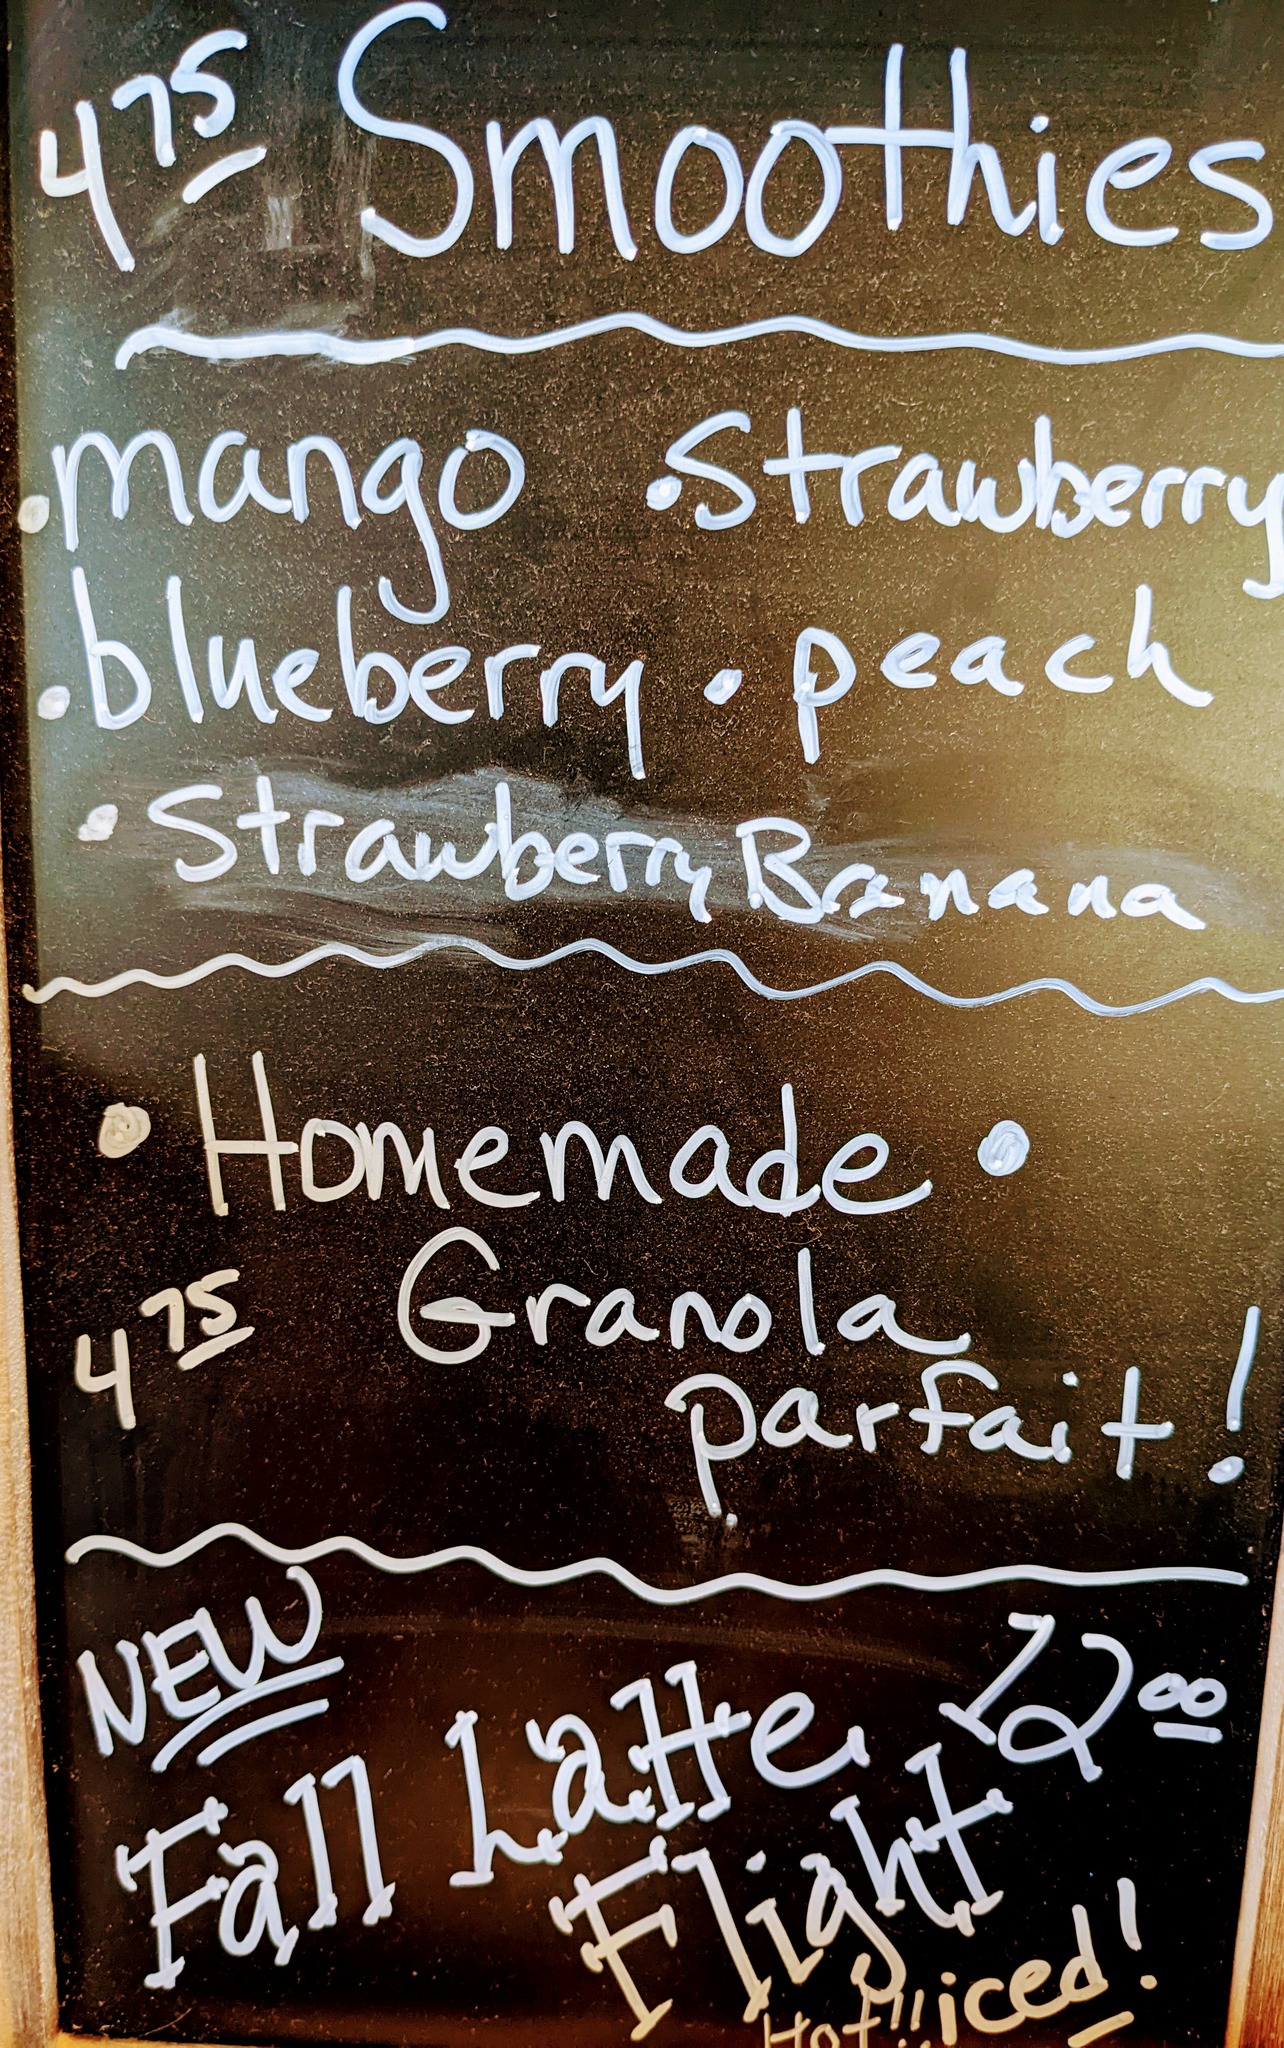 4 75 Smoothies
• mango • Strawberry
• blueberry • peach
• Strawberry Banana
• Homemade •
4 75 Granola
parfait!
NEW
Fall Latte 12 00
Flight
Hot!! iced!